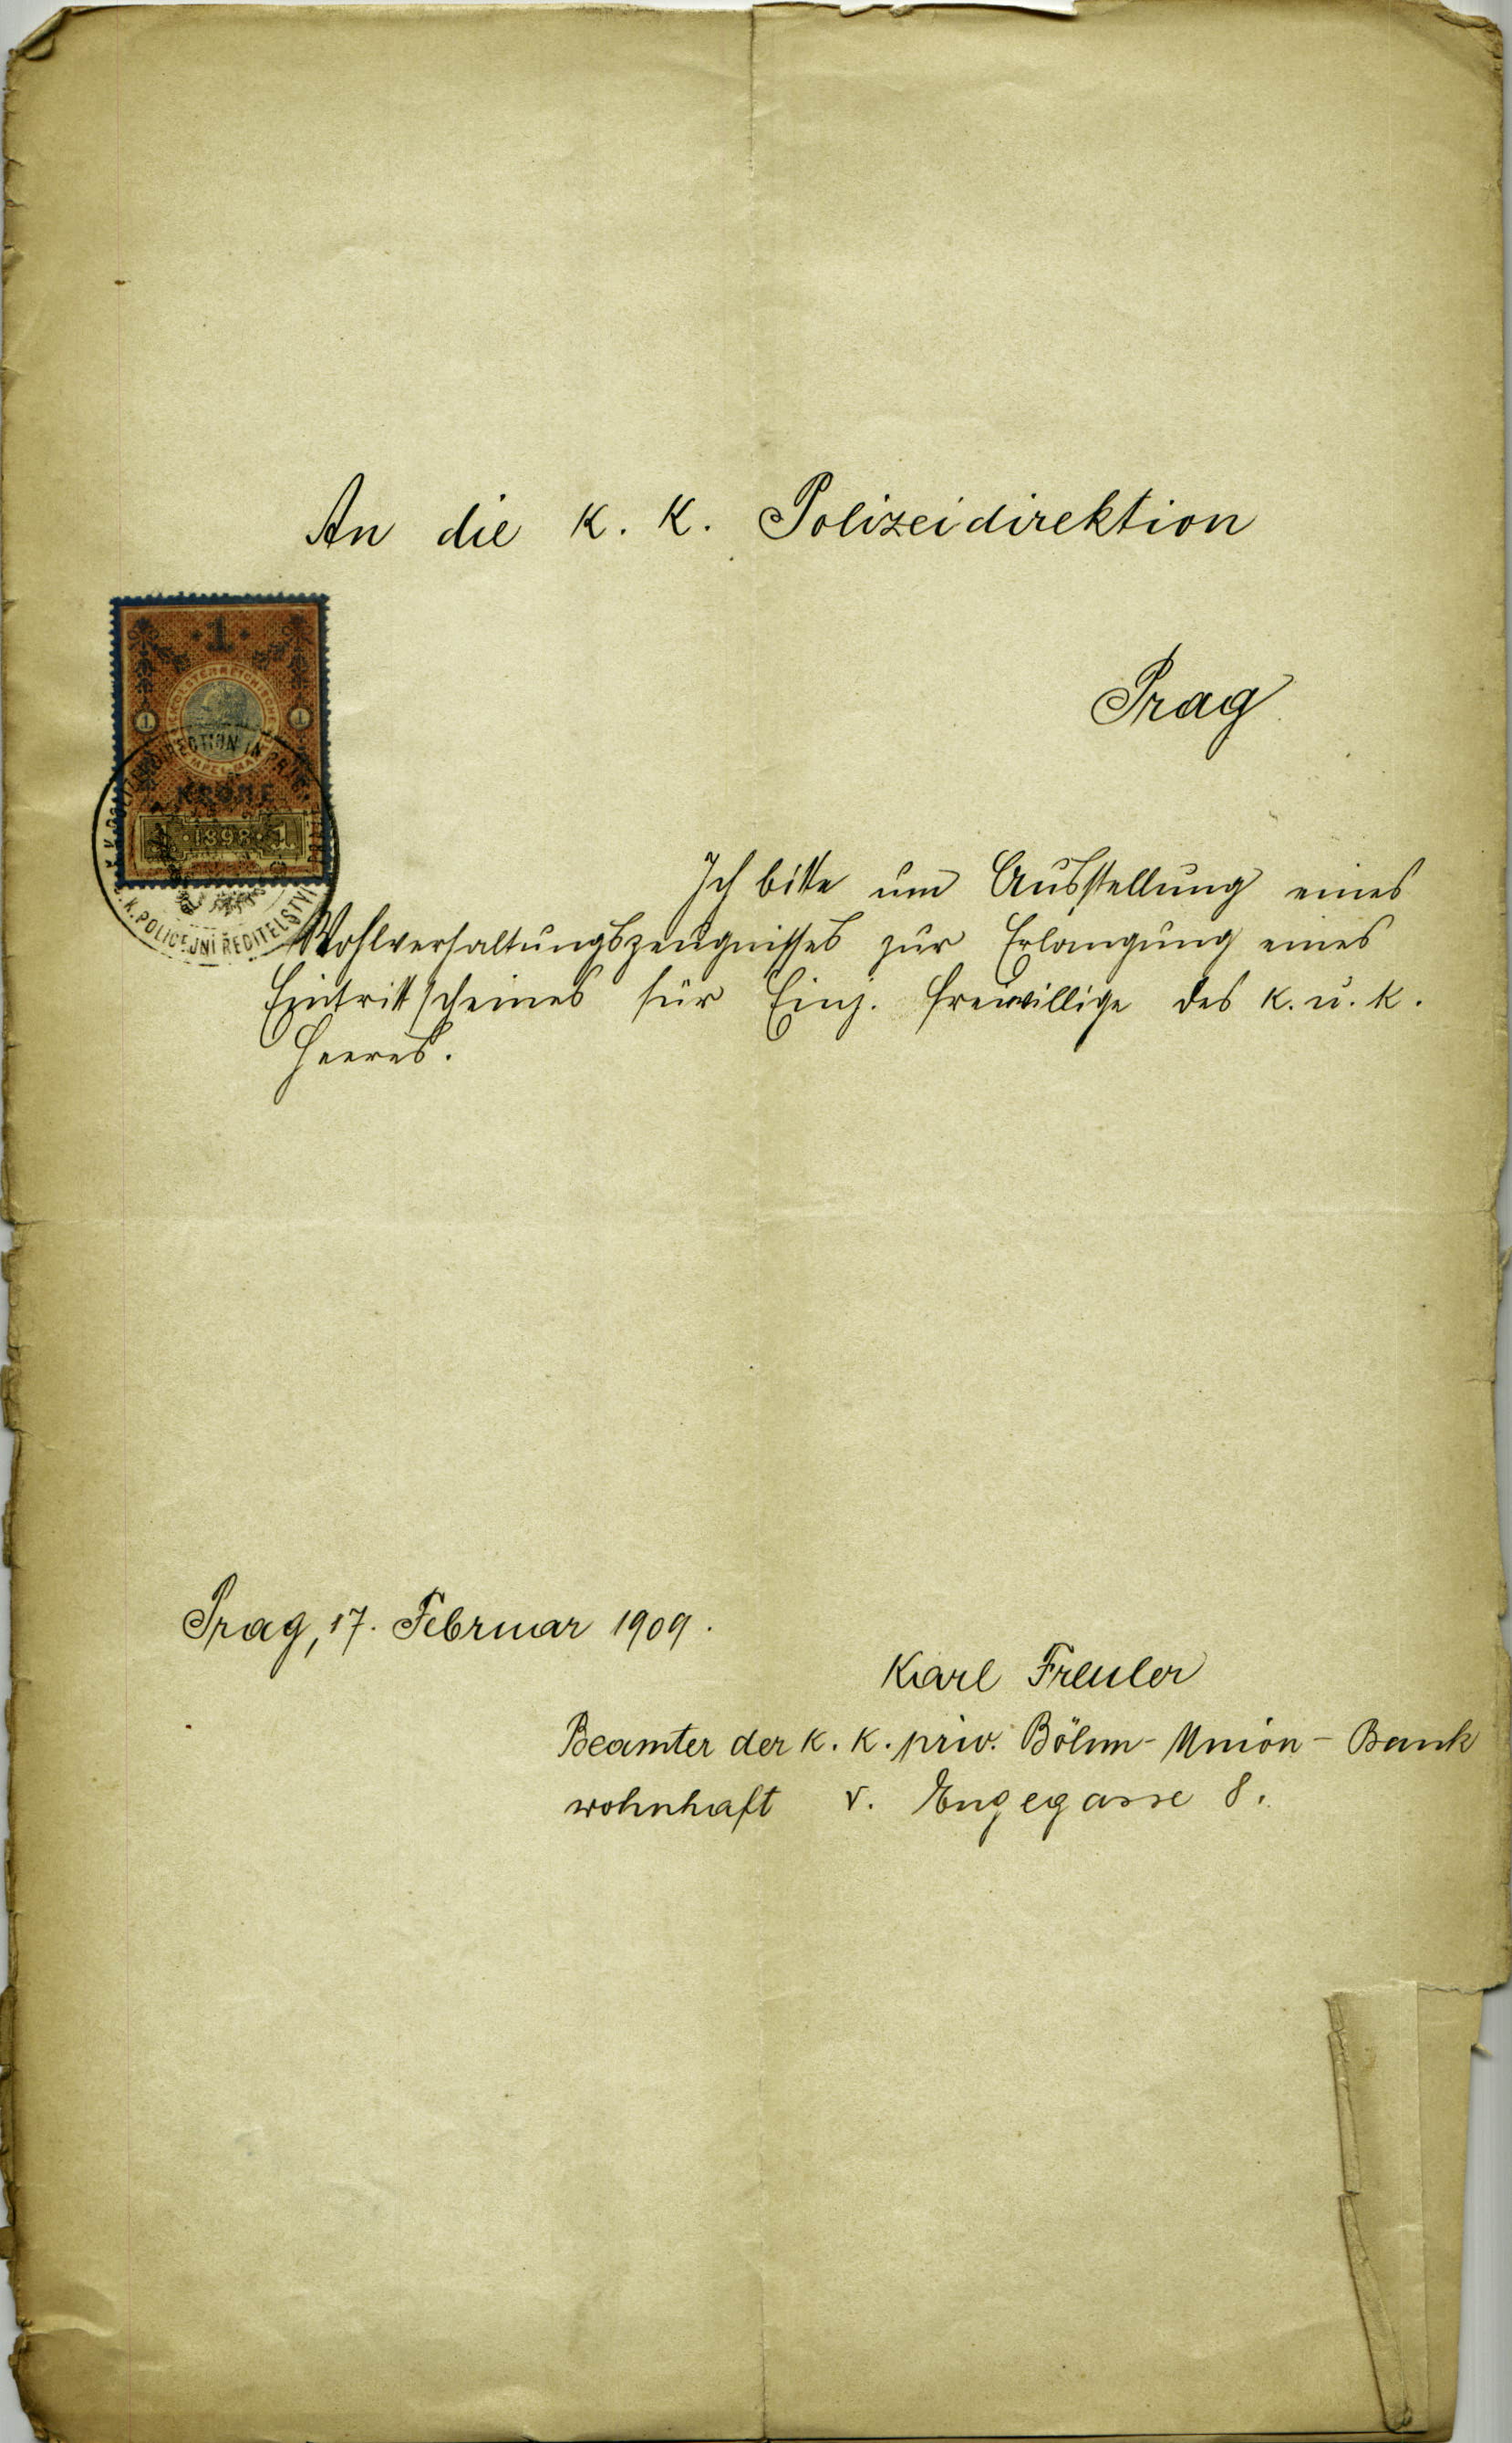 An die K. K. Polizeidirektion
Prag
1
KRONE
1898
K.K. POLIZEIDIRECTION IN PRAG
C.K. POLICEJNÍ ŘEDITELSTVÍ
Ich bitte um Ausstellung eines
Wohlverhaltungszeugnisses zur Erlangung eines
Eintrittscheines für Einj. freiwillige des K. u. K.
Heeres.
Prag, 17. Februar 1909.
Karl Freuler
Beamter der K. K. priv. Böhm- Union- Bank
wohnhaft V. Engegasse 8.